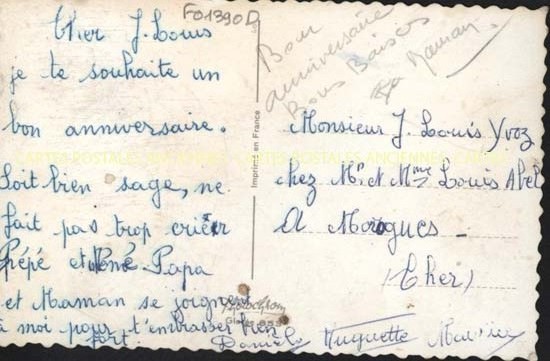 F01390D
Cher J. Louis
je te souhaite un
bon anniversaire.
Soit bien sage, ne
fait pas trop crier
Pépé et Papa
et Maman se joignent
à moi pour t'embrasser bien
fort. Danièle Huguette
Bon
anniversaire
Bons Baisers
Maman
Imprimé en France
Monsieur J. Louis Yvoz
chez Mr et Mme Louis Abel
A Morogues -
(Cher)
CARTES POSTALES ANCIENNES